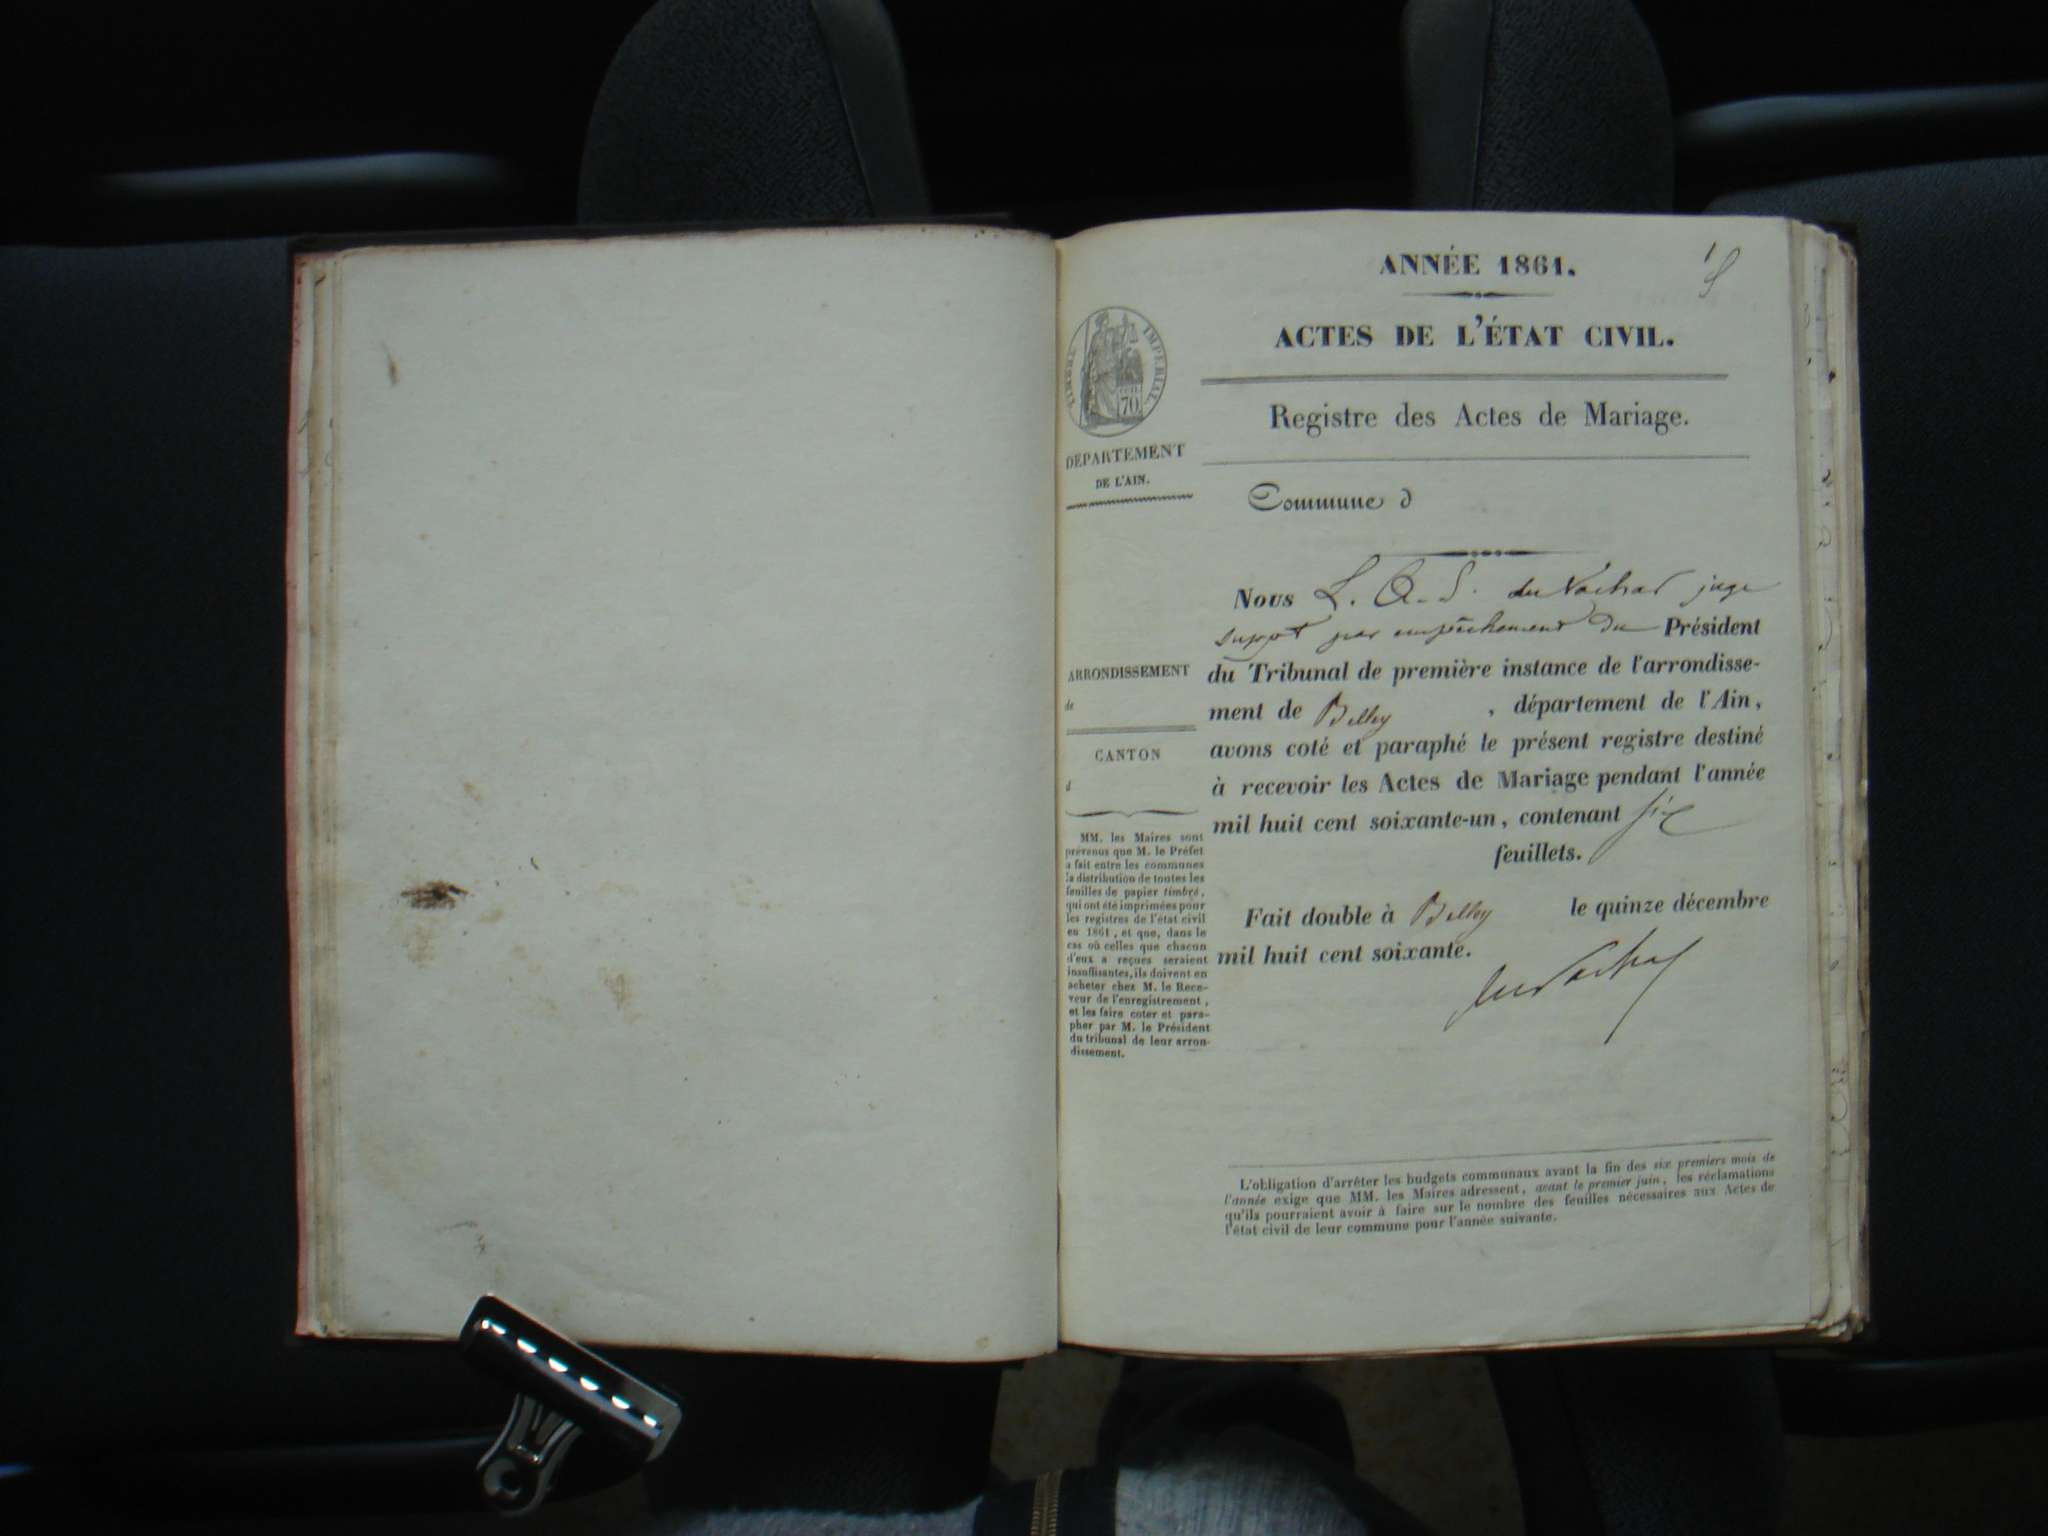 ANNÉE 1861.
ACTES DE L'ÉTAT CIVIL.
TIMBRE IMPERIAL
70
Registre des Actes de Mariage.
DEPARTEMENT
DE L'AIN.
Commune d
Nous L. juge
suppt par empêchement du Président
ARRONDISSEMENT
de
du Tribunal de première instance de l'arrondisse-
ment de Belley , département de l'Ain,
CANTON
d
avons coté et paraphé le présent registre destiné
à recevoir les Actes de Mariage pendant l'année
mil huit cent soixante-un, contenant six
feuillets.
Fait double à Belley le quinze décembre
mil huit cent soixante.
MM. les Maires sont
prévenus que M. le Préfet
a fait entre les communes
la distribution de toutes les
feuilles de papier timbré,
qui ont été imprimées pour
les registres de l'état civil
en 1861, et que, dans le
cas où celles que chacun
d'eux a reçues seraient
insuffisantes, ils doivent en
acheter chez M. le Rece-
veur de l'enregistrement,
et les faire coter et para-
pher par M. le Président
du tribunal de leur arron-
dissement.
L'obligation d'arrêter les budgets communaux avant la fin des six premiers mois de
l'année exige que MM. les Maires adressent, avant le premier juin, les réclamations
qu'ils pourraient avoir à faire sur le nombre des feuilles nécessaires aux Actes de
l'état civil de leur commune pour l'année suivante.